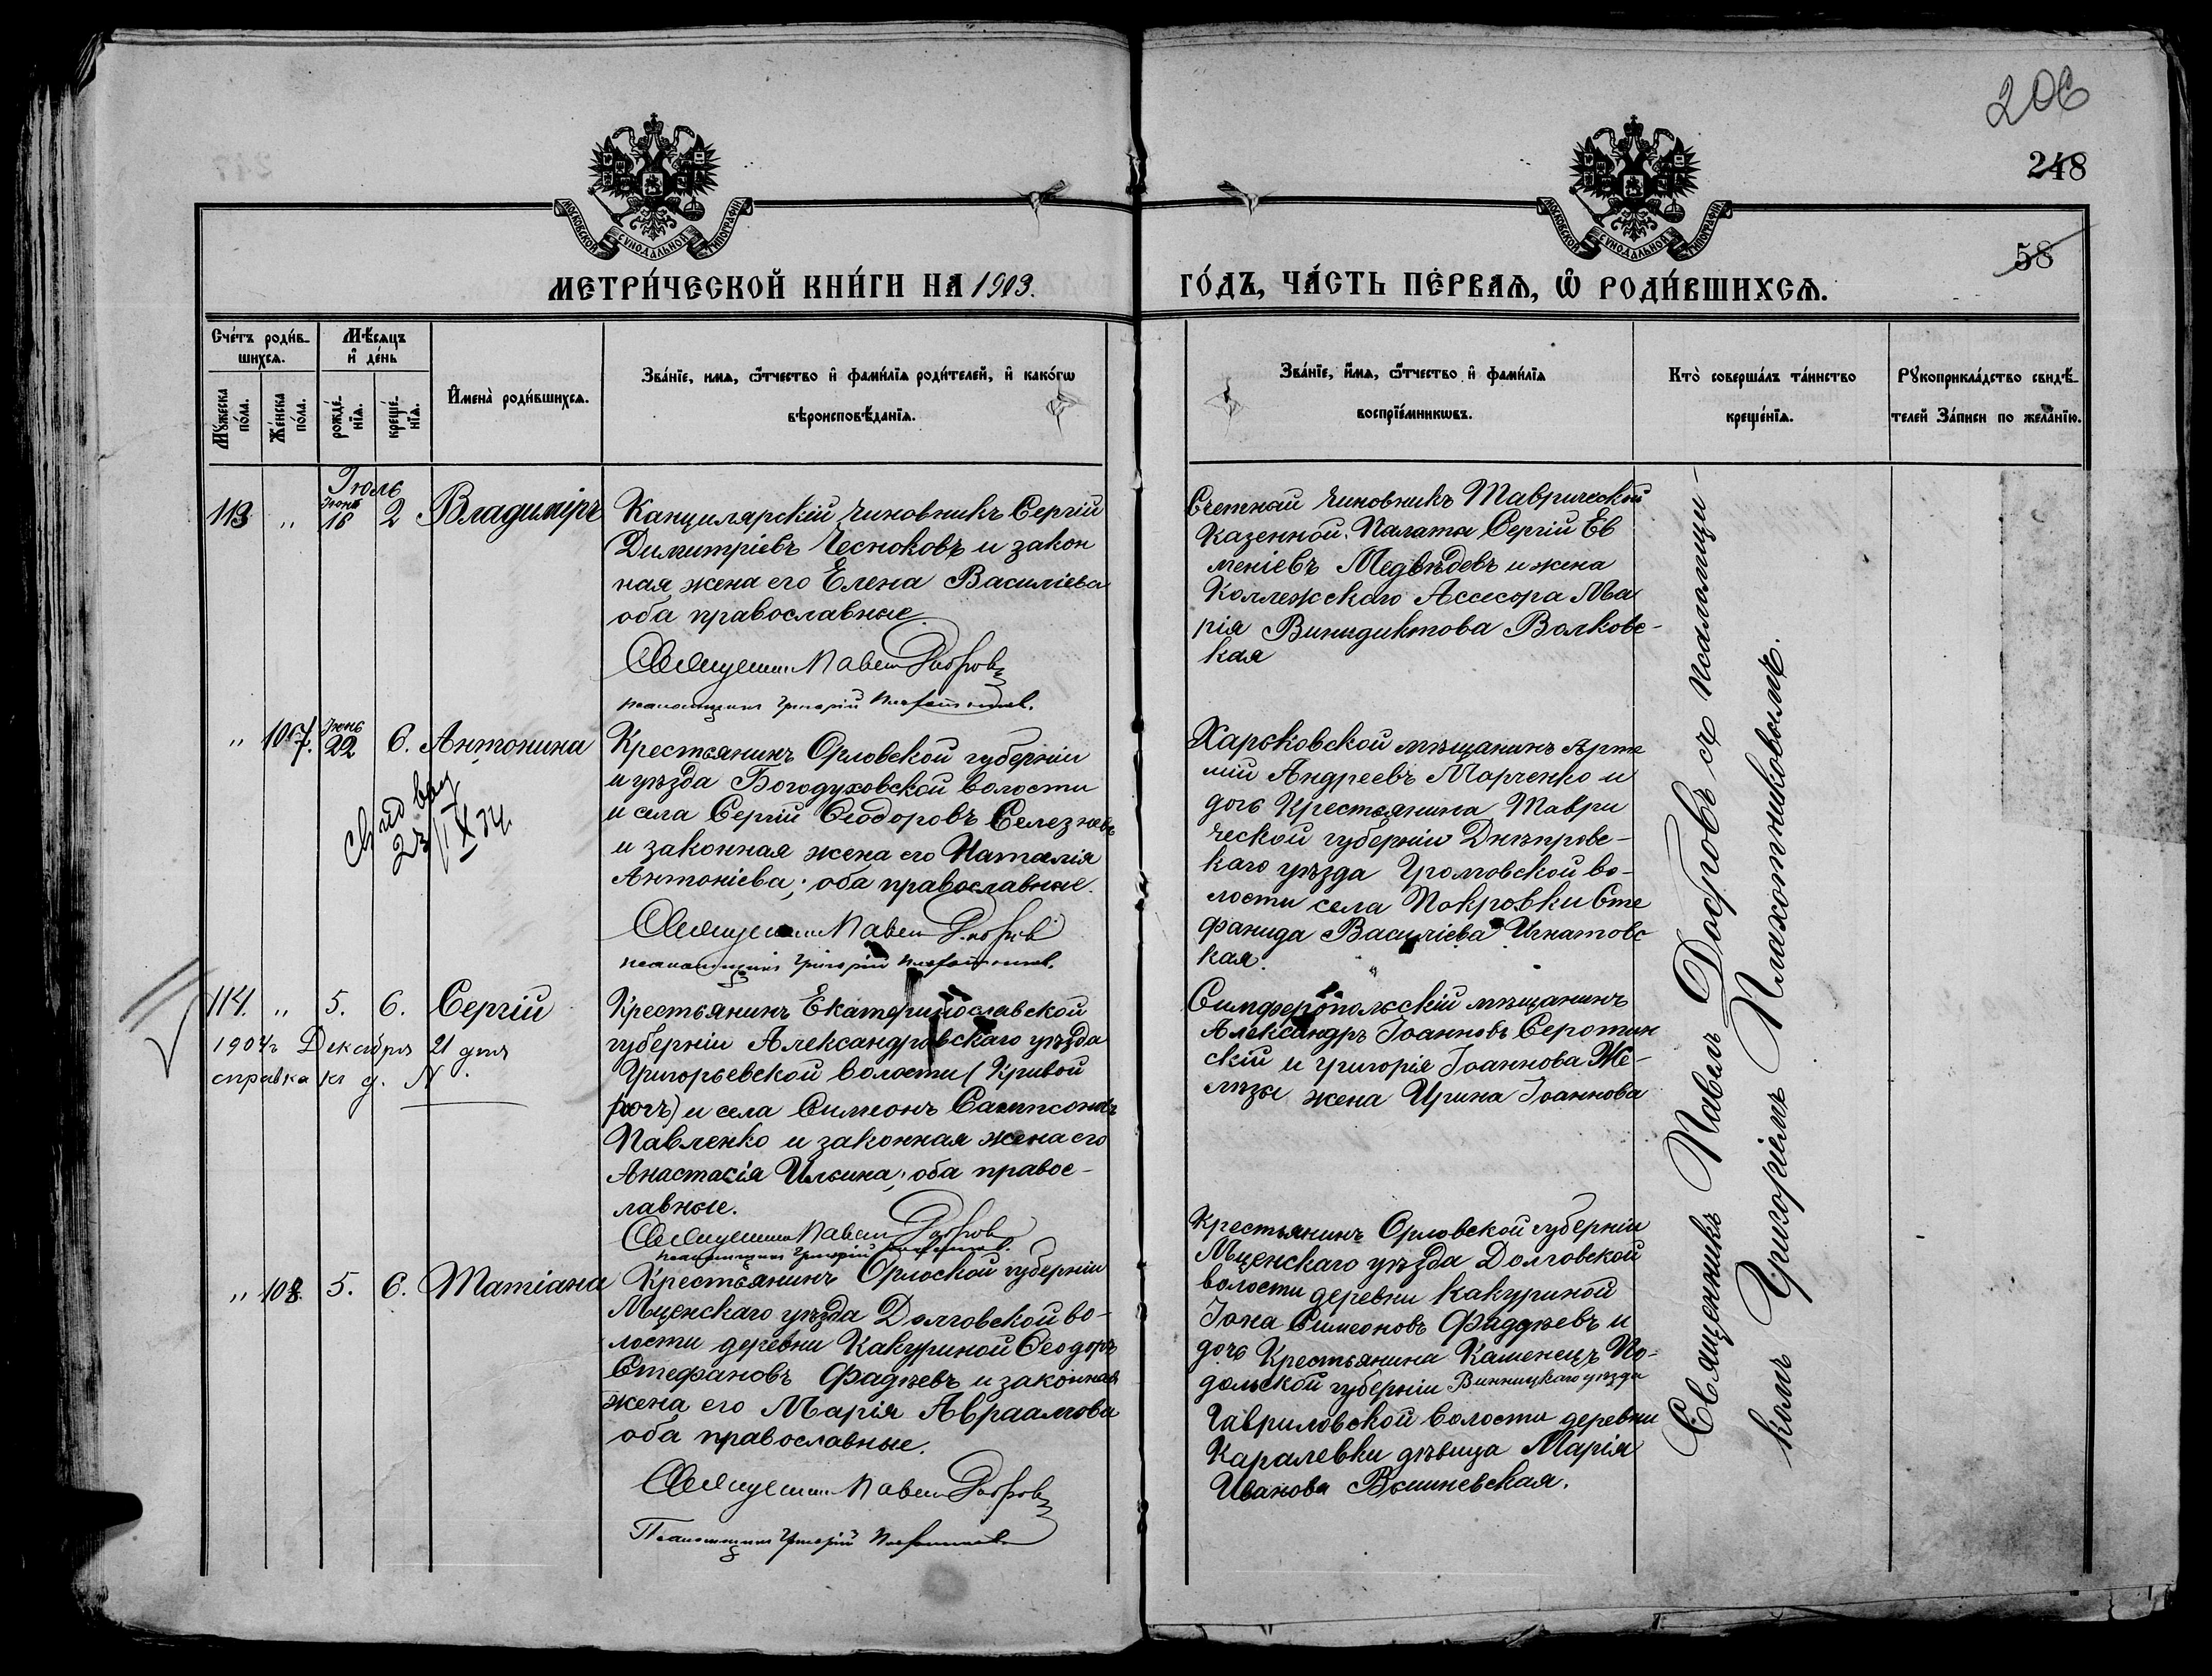 206
248
58
МОСКОВСКОЙ СѴНОДАЛЬНОЙ ТИПОГРАФІИ
МОСКОВСКОЙ СѴНОДАЛЬНОЙ ТИПОГРАФІИ
МЕТРИ́ЧЕСКОЙ КНИ́ГИ НА 1903.
ГО́ДЪ, ЧА́СТЬ ПЕ́РВАѦ, Ѡ҆ РОДИ́ВШИХСѦ.
Сче́тъ роди́в-
шихсѧ.
Мꙋжеска по́ла.
Же́нска по́ла.
Мѣ́сѧцъ
и҆ де́нь
рожде́-
нїѧ.
креще́-
нїѧ.
И҆мена̀ роди́вшихсѧ.
Зва́нїе, имѧ, ѻ҆́тчество и҆ фами́лїѧ роди́телей, и҆ како́гѡ
вѣроисповѣ́данїѧ.
Зва́нїе, и҆́мѧ, ѻ҆́тчество и҆ фами́лїѧ
воспрїе́мникѡвъ.
Кто̀ соверша́лъ та́инство
креще́нїѧ.
Рꙋкоприкла́дство свидѣ́-
телей За́писи по жела́нїю.
Іюль
113 „ Іюнь 18 2 Владиміръ
Канцилярскій чиновникъ Сергій
Димитріевъ Чесноковъ и закон
ная жена его Елена Василіева
оба православные.
Священникъ Павелъ Добровъ
псаломщикъ Григорій Плахотниковъ.
Счетной чиновникъ Таврической
Казенной Палаты Сергій Ев
меніевъ Медвѣдевъ и жена
Коллежскаго Ассесора Ма
рія Винидиктова Волковс-
кая
„ 107. Іюнь 22 6. Антонина
Крестьянинъ Орловской губерніи
и уѣзда Богодуховской волости
и села Сергій Ѳеодоровъ Селезневъ
и законная жена его Наталія
Антоніева; оба православные.
Священникъ Павелъ Добровъ
псаломщикъ Григорій Плахотниковъ.
Харьковской мѣщанинъ Арте
мій Андреевъ Марченко и
дочь Крестьянина Таври
ческой губерніи Днѣпровс-
каго уѣзда Громовской во-
лости села Покровки Сте
фанида Василіева Игнатовс
кая.
114. „ 5. 6. Сергій
1904г Декабря 21 дня
справка къ д. N
Крестьянинъ Екатеринославской
губерніи Александровскаго уѣзда
Григорьевской волости (Кривой
рогъ) и села Симеонъ Сампсоновъ
Павленко и законная жена его
Анастасія Ильина; оба правос-
лавные.
Священникъ Павелъ Добровъ
псаломщикъ Григорій Плахотниковъ.
Симферопольскій мѣщанинъ
Александръ Іоанновъ Серотин
скій и Григорія Іоаннова Же-
лѣзы жена Ирина Іоаннова
„ 108. 5. 6. Татіана
Крестьянинъ Орлоской губерніи
Мценскаго уѣзда Долговской во-
лости деревни Какуриной Ѳеодоръ
Стефановъ Фадѣевъ и законная
жена его Марія Авраамова
оба православные.
Священникъ Павелъ Добровъ
Псаломщикъ Григорій Плахотниковъ
Крестьянинъ Орловской губерніи
Мценскаго уѣзда Долговской
волости деревни Какуриной
Іона Симеоновъ Фаддѣевъ и
дочь Крестьянина Каменецъ По-
дольской губерніи Винницкаго уѣзда
Гавриловской волости деревни
Каралевки дѣвица Марія
Иванова Вышневская.
Священникъ Павелъ Добровъ съ псаломщи-
комъ Григоріемъ Плахотниковымъ.